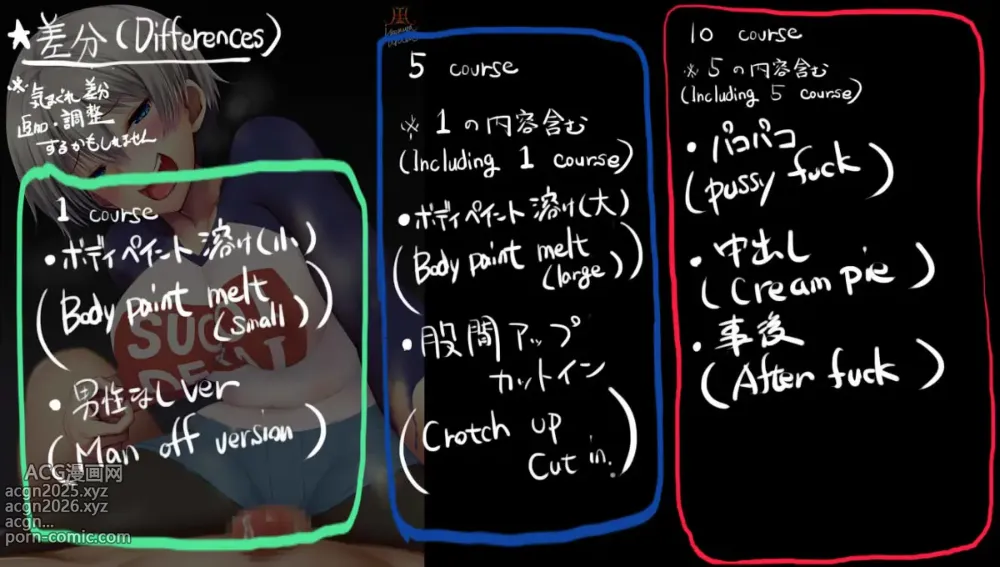 ★差分(Differences)
※気まぐれ差分
追加・調整
するかもしれません
1 course
・ボディペイント溶け(小)
(Body paint melt
(small))
・男性なしver
(Man off version)
5 course
※1の内容含む
(Including 1 course)
・ボディペイント溶け(大)
(Body paint melt
(large))
・股間アップ
カットイン
(Crotch up
Cut in.)
10 course
※5の内容含む
(Including 5 course)
・パコパコ
(pussy fuck)
・中出し
(Cream pie)
・事後
(After fuck)
SUGOI
DEKAI
ACG漫画网
acgn2025.xyz
acgn2026.xyz
acgn...
porn-comic.com